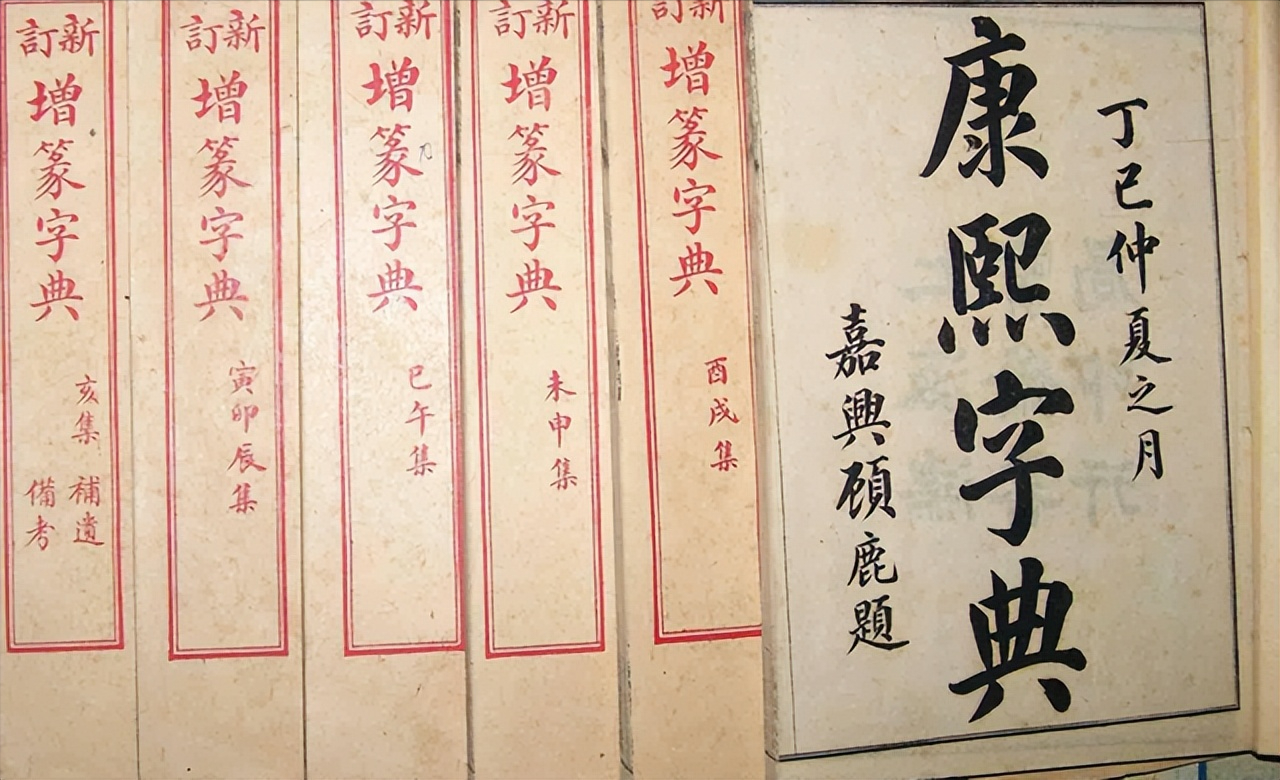 新訂
增篆字典
亥集
補遺
備考
新訂
增篆字典
寅卯辰集
新訂
增篆字典
巳午集
新訂
增篆字典
未申集
新訂
增篆字典
酉戌集
丁巳仲夏之月
康熙字典
嘉興顧鹿題